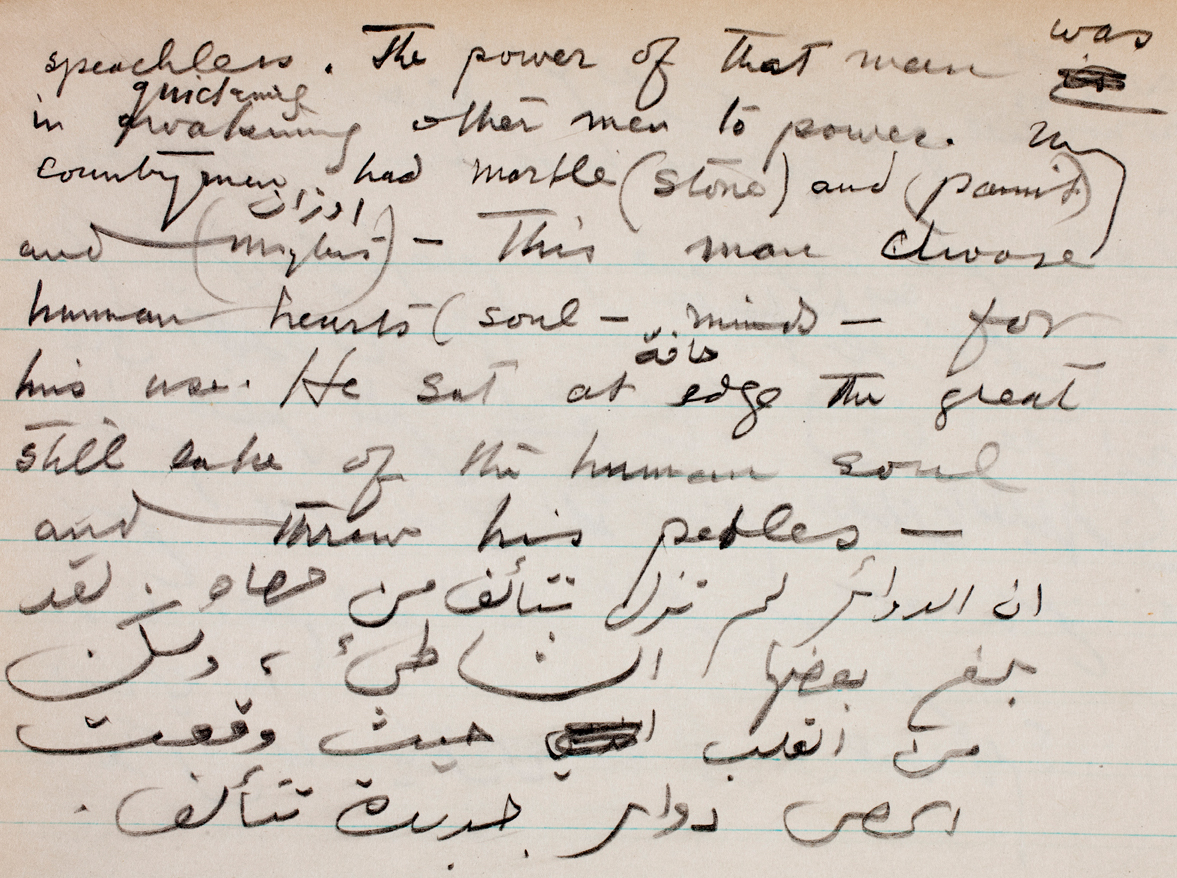 was
speachless. The power of that man
quickening
in awakening other men to power. My
countrymen had marble (stone) and (paint)
اوزان
and (mylus) — This man choose
human hearts (soul — minds — for
حافة
his use. He sat at edge the great
still lake of the human soul
and threw his pebles —
ان الدوائر لم تزل تتألف من حصاه. لقد
بلغ بعضها الشاطئ، ولكن
من القلب حيث وقعت
الحصى دوائر جديدة تتألف.